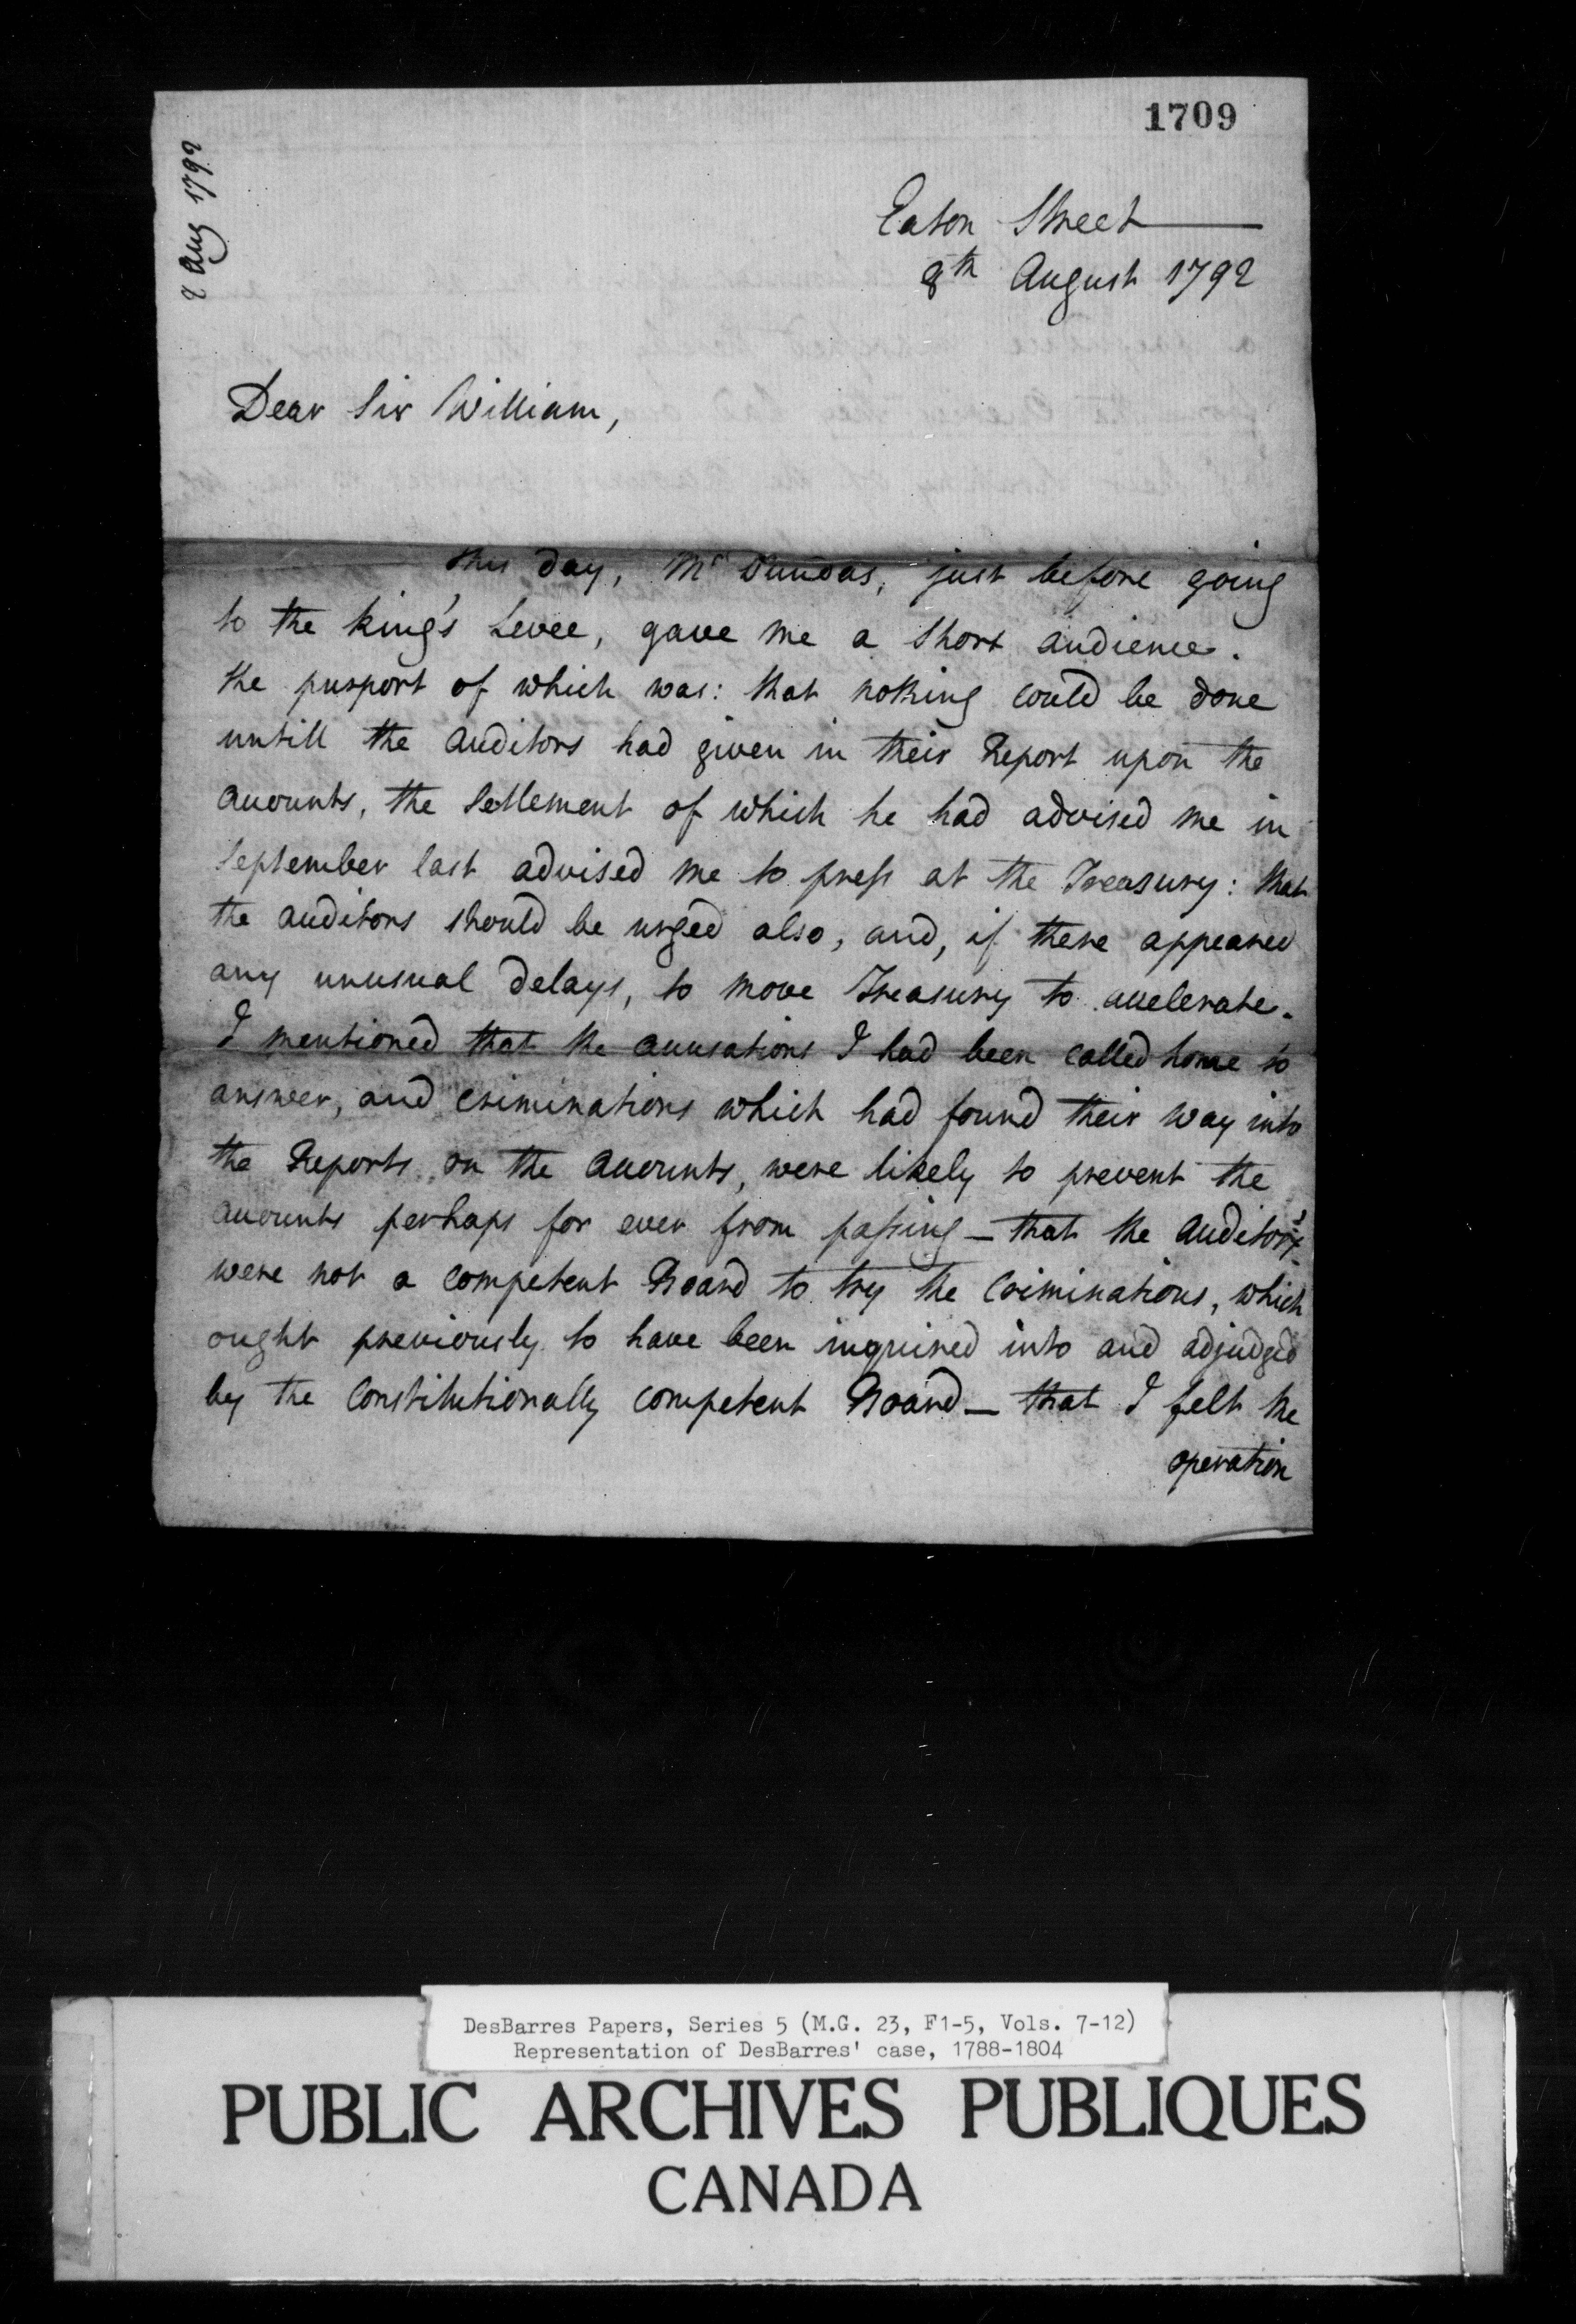 1709
8 Aug 1792
Eaton Street
8th August 1792
Dear Sir William,
This day, Mr Dundas, just before going
to the King's Levee, gave me a short audience.
the purport of which was: that nothing could be done
untill the Auditors had given in their Report upon the
Accounts, the Settlement of which he had advised me in
September last advised me to press at the Treasury: that
the Auditors should be urged also, and, if there appeared
any unusual delays, to move Treasury to accelerate.
I mentioned that the accusations I had been called home to
answer, and criminations which had found their way into
the Reports on the Accounts, were likely to prevent the
Accounts perhaps for ever from passing — that the Auditors
were not a competent Board to try the Criminations, which
ought previously to have been inquired into and adjudged
by the Constitutionally competent Board — that I felt the
operation
DesBarres Papers, Series 5 (M.G. 23, F1-5, Vols. 7-12)
Representation of DesBarres' case, 1788-1804
PUBLIC ARCHIVES PUBLIQUES
CANADA